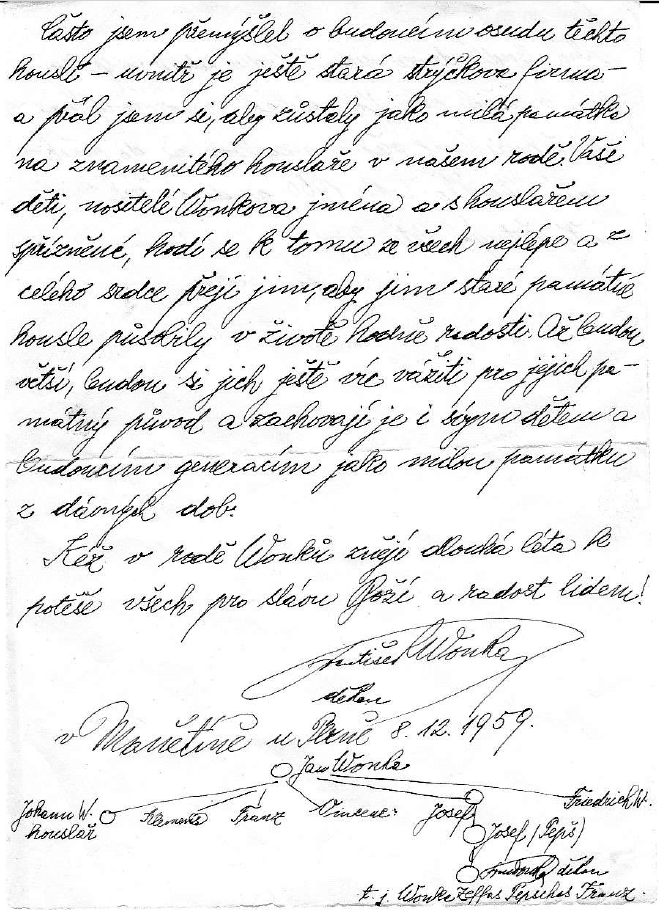 Často jsem přemýšlel o budoucím osudu těchto
houslí – uvnitř je ještě stará strýčkova firma –
a přál jsem si, aby zůstaly jako milá památka
na znamenitého houslaře v našem rodě. Vaše
děti, nositelé Wonkova jména a s houslařem
spřízněné, hodí se k tomu ze všech nejlépe a z
celého srdce přeji jim, aby jim staré památné
housle působily v životě hodně radosti. Až budou
větší, budou si jich ještě víc vážiti pro jejich pa-
mátný původ a zachovají je i svým dětem a
budoucím generacím jako milou památku
z dávných dob.
Kéž v rodě Wonků znějí dlouhá léta k
potěše všech pro slávu Boží a radost lidem!
František Wonka
děkan
v Manětíně u Plzně 8. 12. 1959.
Jan Wonka
Johann W. Klemens Franz Vincenc Josef Friedrich W.
houslář Josef (Pepš)
děkan
t. j. Wonka Zeffas Pepschas Franz.